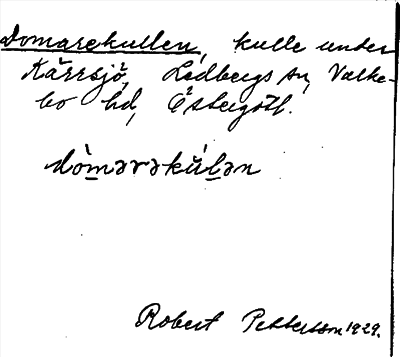 Domarekullen, kulle under
Kärrsjö, Ledbergs sn, Valke-
bo hd, Östergötl.
dòmarəkúlən
Robert Pettersson 1929.